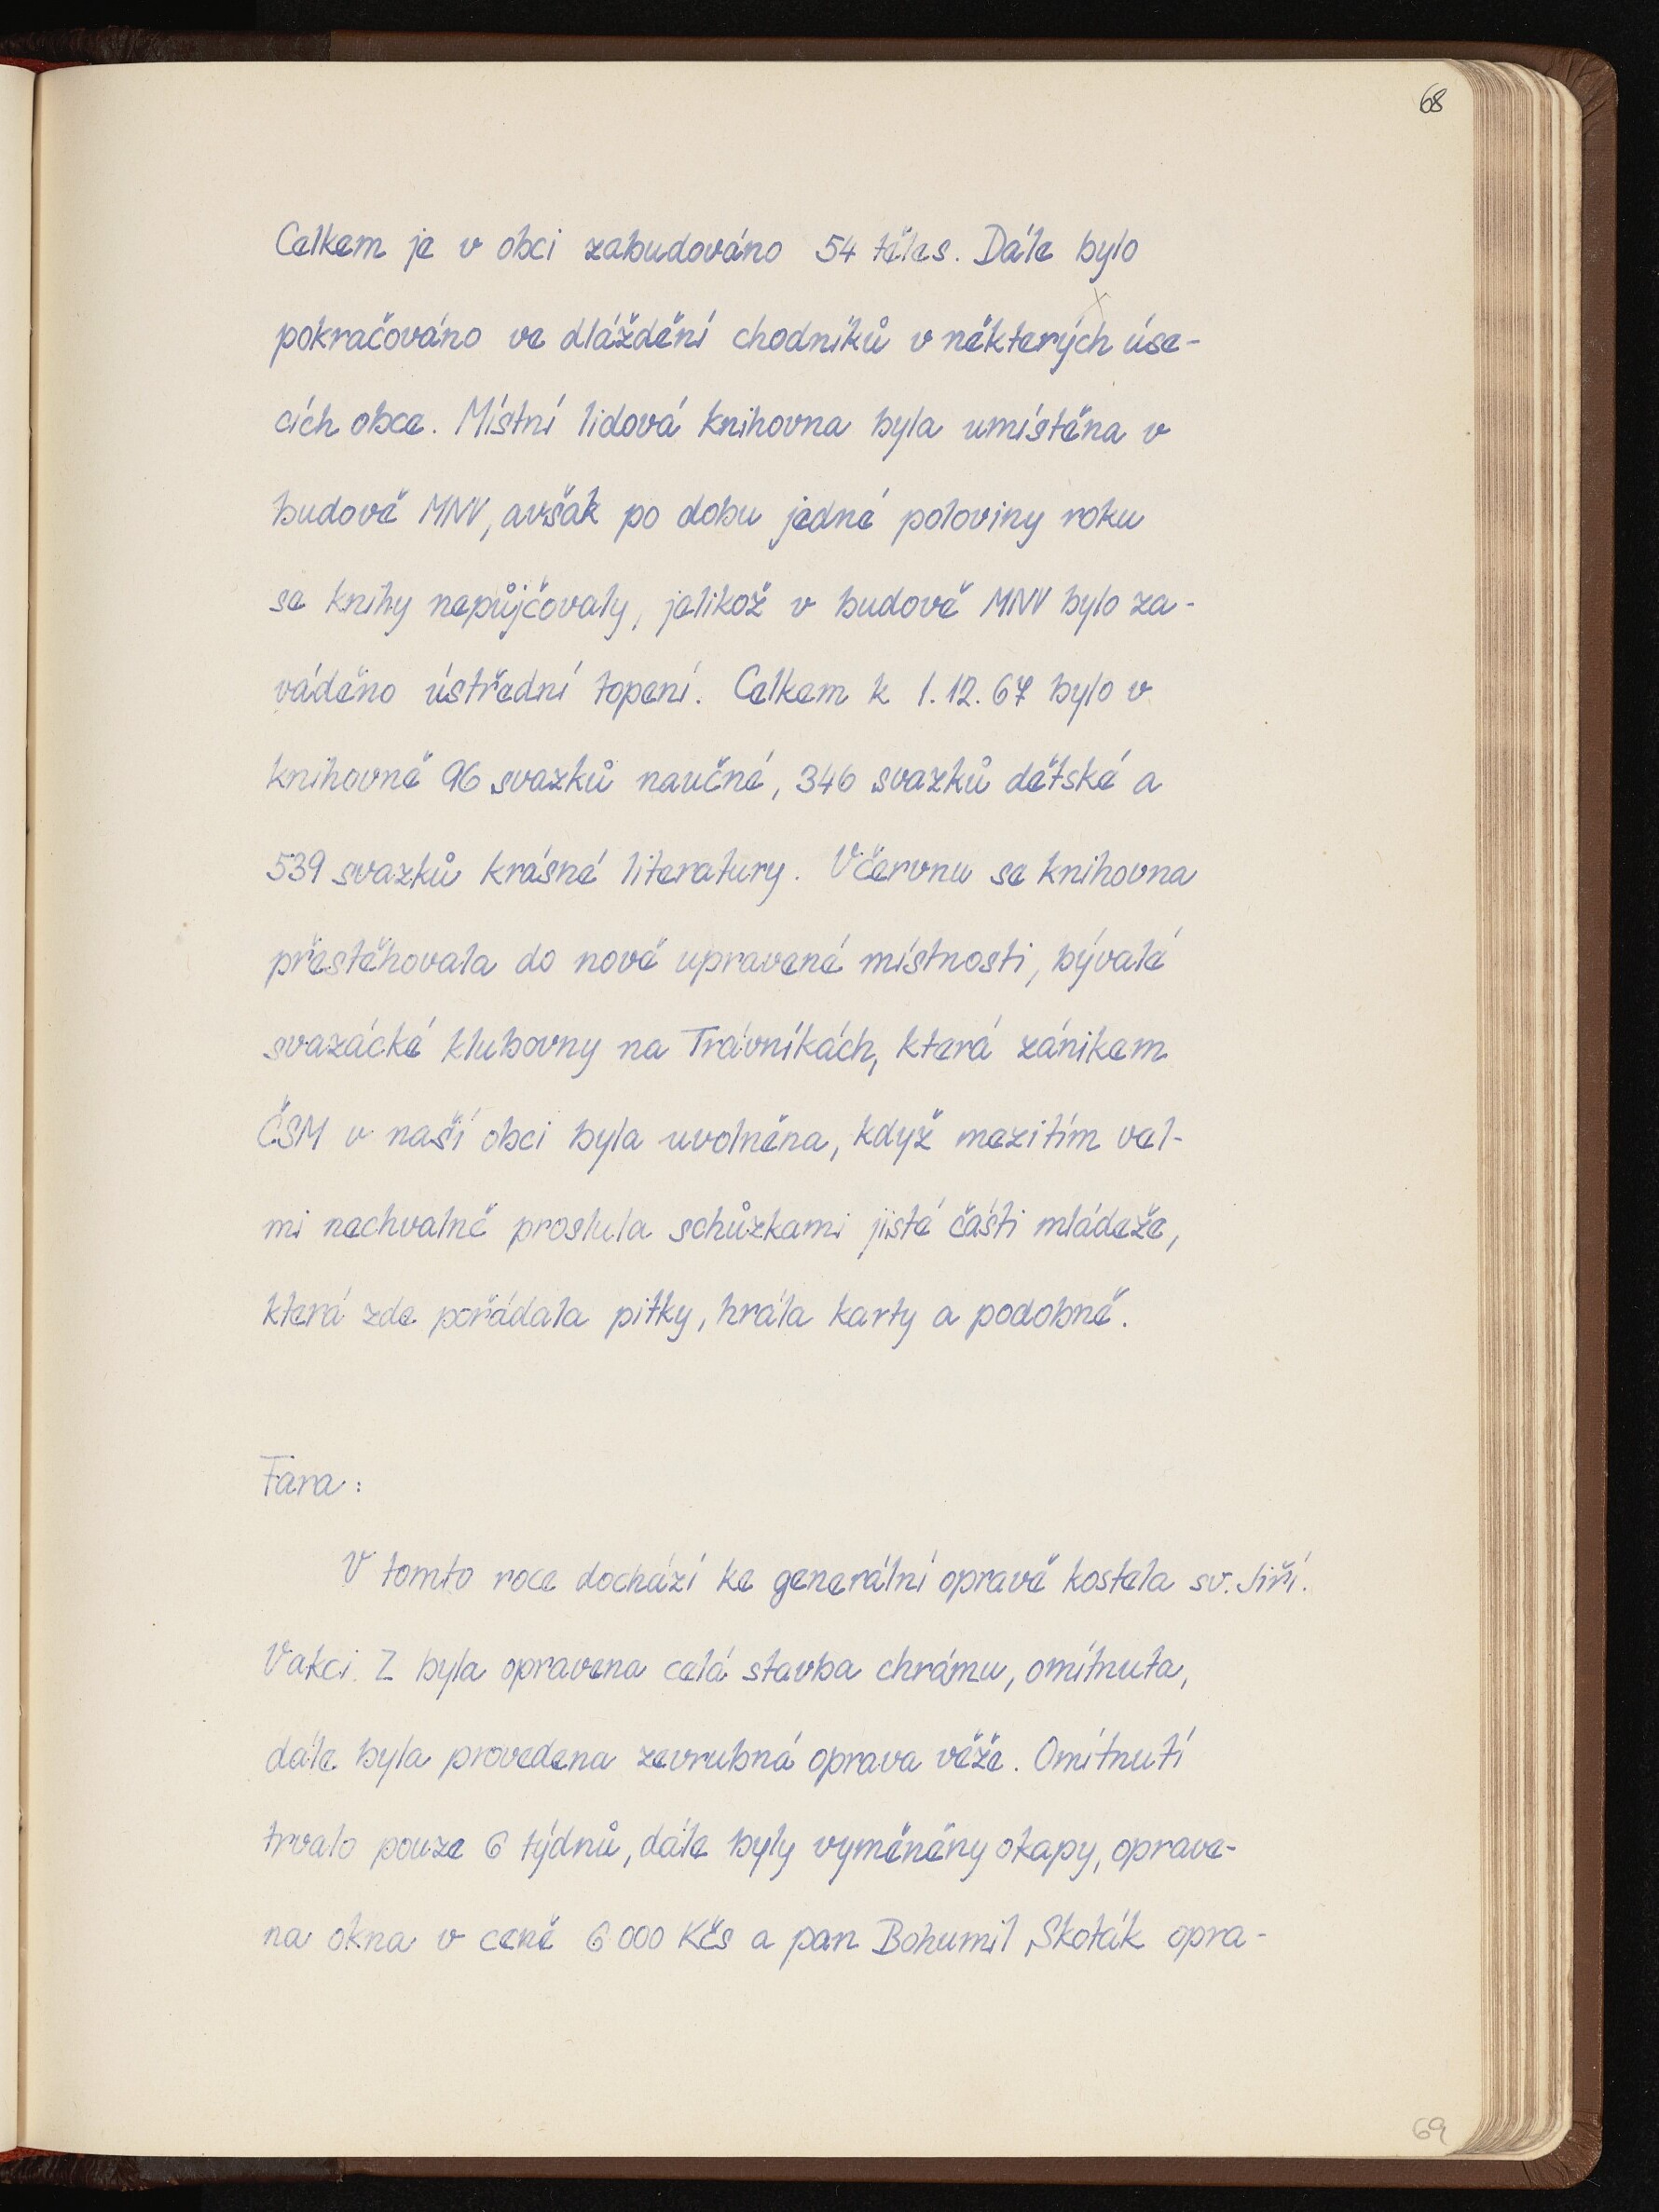 68
Celkem je v obci zabudováno 54 těles. Dále bylo
pokračováno ve dláždění chodníků v některých úse-
cích obce. Místní lidová knihovna byla umístěna v
budově MNV, avšak po dobu jedné poloviny roku
se knihy nepůjčovaly, jelikož v budově MNV bylo za-
váděno ústřední topení. Celkem k 1.12.67 bylo v
knihovně 96 svazků naučné, 346 svazků dětské a
539 svazků krásné literatury. V červnu se knihovna
přestěhovala do nově upravené místnosti, bývalé
svazácké klubovny na Trávníkách, která zánikem
ČSM v naší obci byla uvolněna, když mezitím vel-
mi nechvalně proslula schůzkami jisté části mládeže,
která zde pořádala pitky, hrála karty a podobně.
Fara:
V tomto roce dochází ke generální opravě kostela sv. Jiří.
V akci Z byla opravena celá stavba chrámu, omítnuta,
dále byla provedena zevrubná oprava věže. Omítnutí
trvalo pouze 6 týdnů, dále byly vyměněny okapy, oprave-
na okna v ceně 6 000 Kčs a pan Bohumil Skoták opra-
69